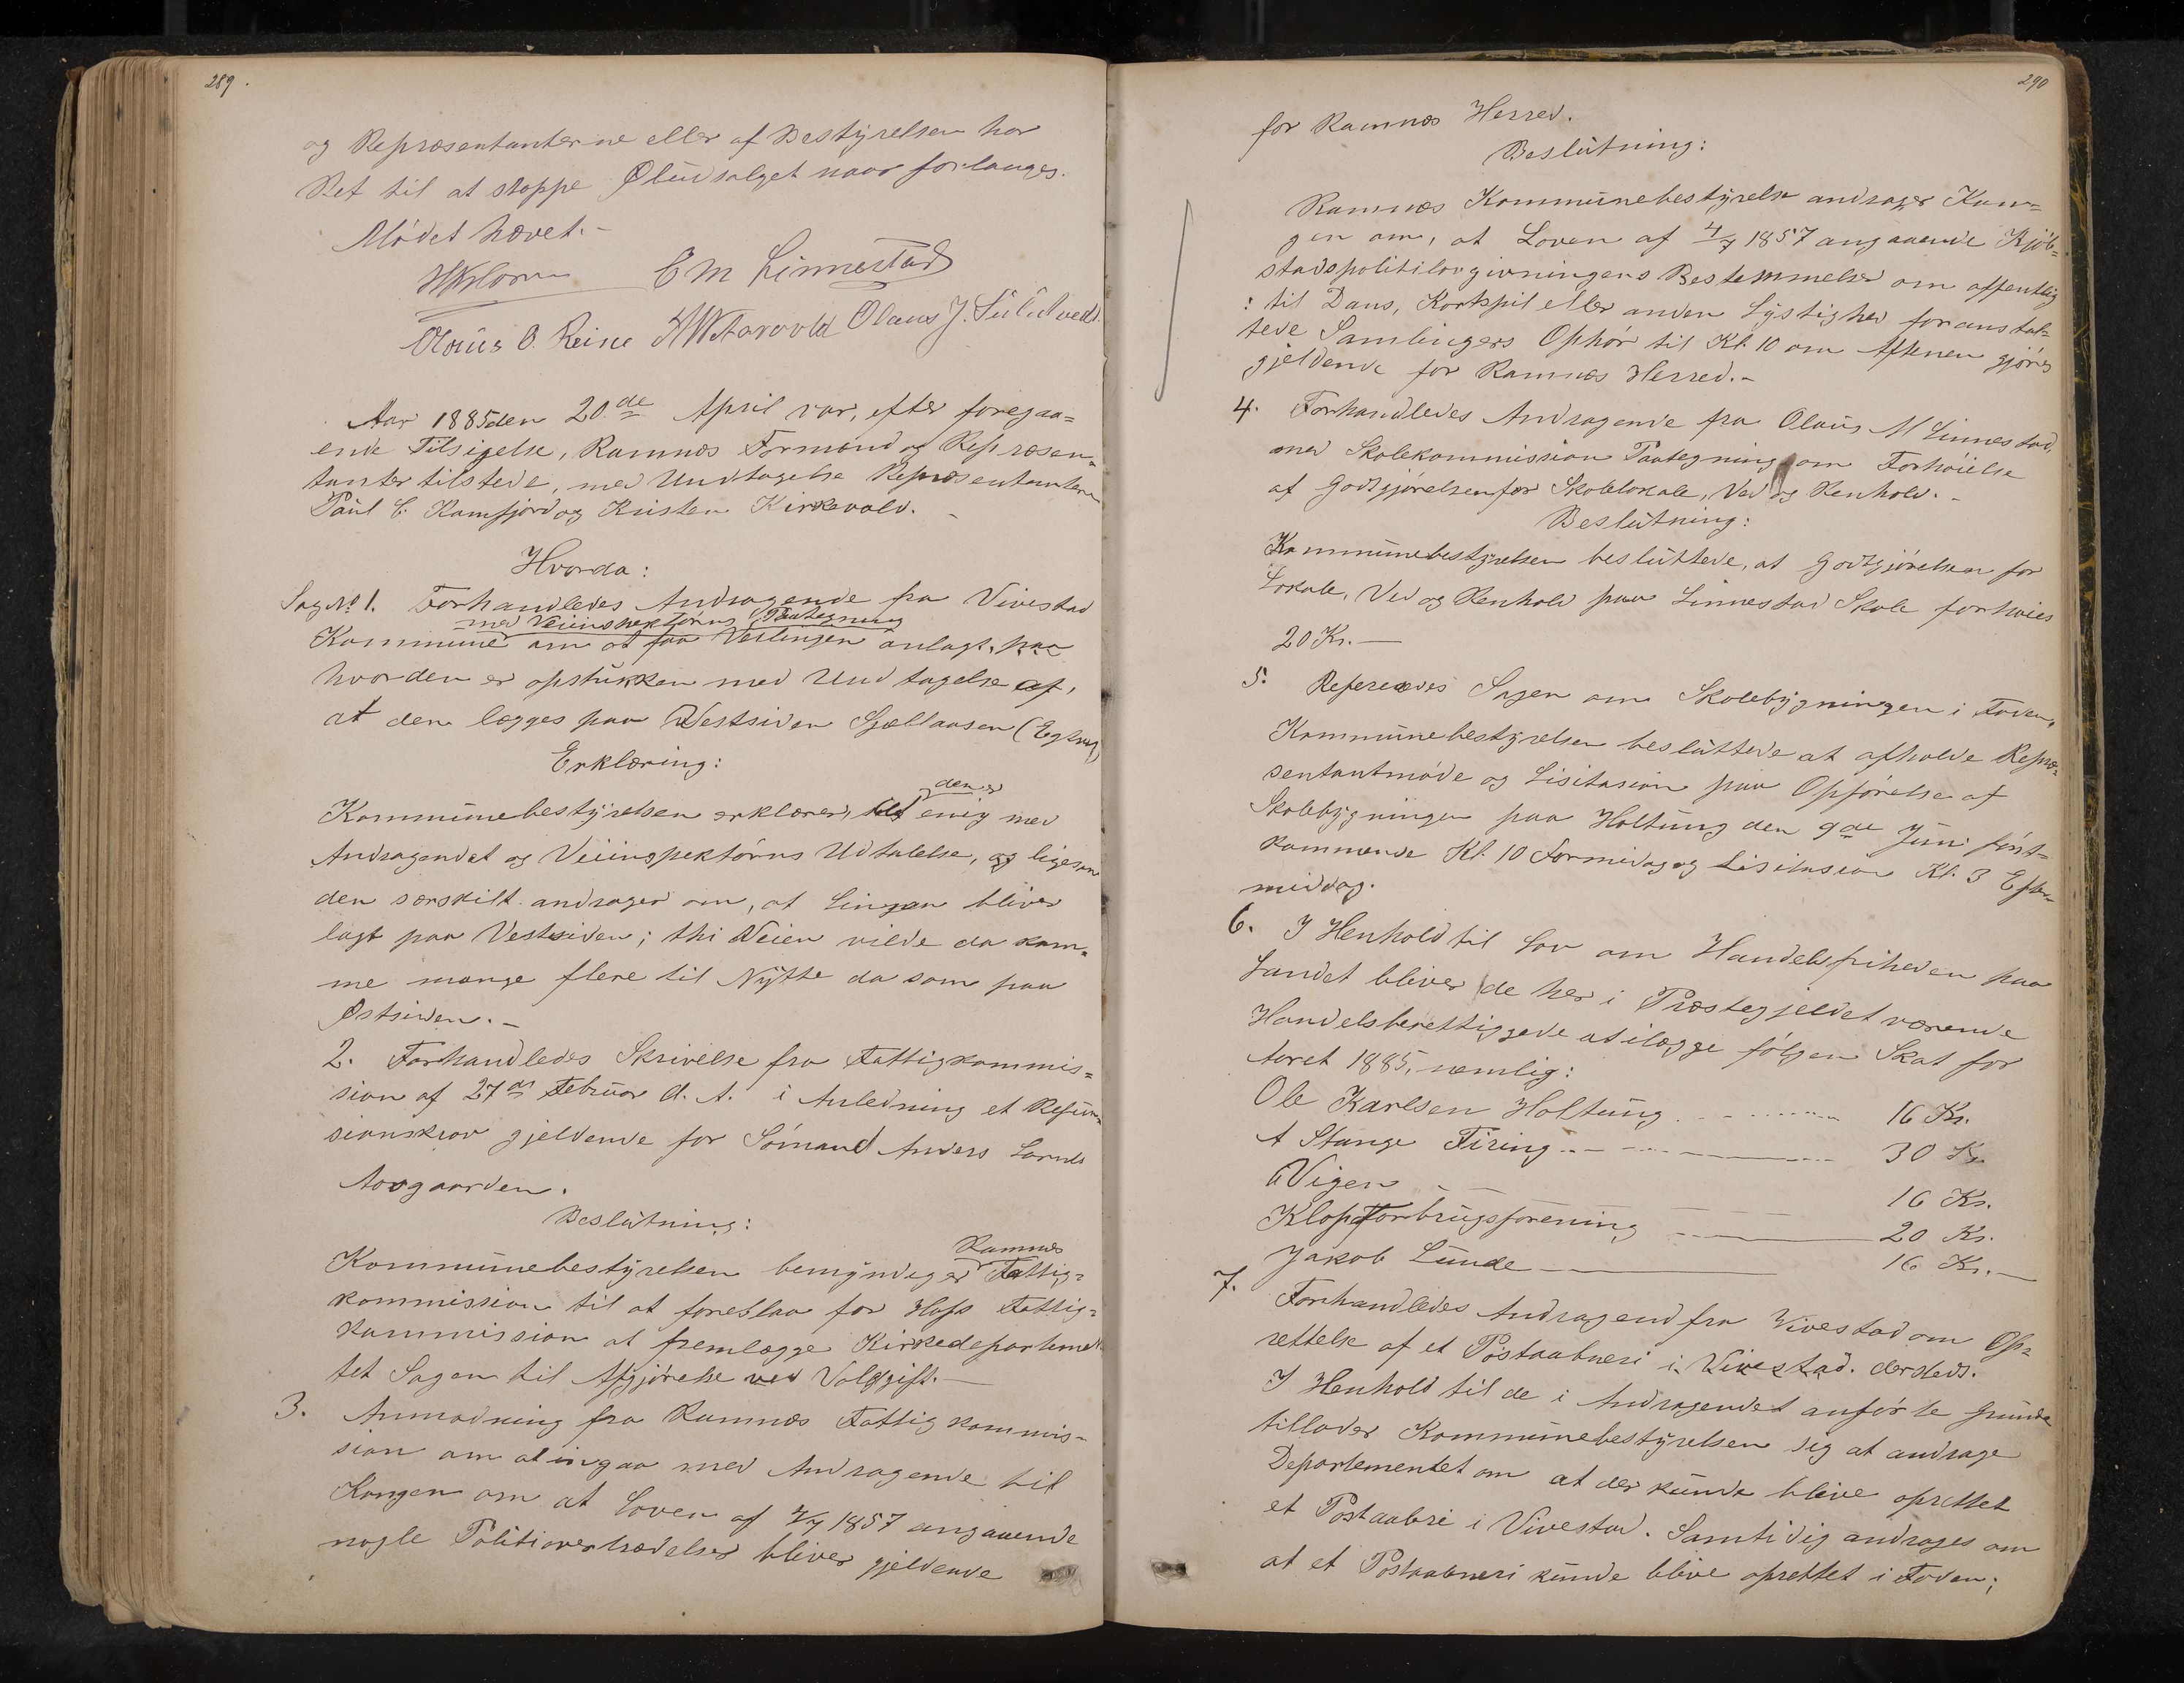 289.
og Repræsentanterne eller af Bestyrelsen har
Ret til at stoppe Øludsalget naar forlanges.
Mødet hævet.-
C M Linnestad
Olaus O. Reine Olaus J.
Aar 1885 den 20de April var, efter foregaa=
ende Tilsigelse, Ramnæs Formænd og Repræsen=
tanter tilstede, med Undtagelse Repræsentanterne
Paul C. Ramfjord og Kristen Kirkevold. -
Hvorda:
Sag No 1. Forhandledes Andragende fra Vivestad
med Veiinspektørens Paategning
Kommune om at faa Veilinjen anlagt, paa
hvor den er opstukken med Undtagelse af,
at den lægges paa Vestsiden
Erklæring:
den er
Kommunebestyrelsen erklærer, enig med
Andragendet og Veiinspektørns Udtalelse, og ligesom
den særskilt andrager om, at Linjen bliver
lagt paa Vestsiden; thi Veien vilde da kom=
me mange flere til Nytte da som paa
Østsiden. -
2. Forhandledes Skrivelse fra Fattigkommis=
sion af 27de Februar d. A. i Anledning et Refu=
sionskrav gjeldende for Sömand Anders
Aasgaarden.
Beslutning:
Ramnæs
Kommunebestyrelsen bemyndiger Fattig=
kommission til at foreslaa for Hofs Fattig=
kommission at fremlægge Kirkedepartemen
tet Sagen til Afgjörelse ved Voldgift. —
3. Anmodning fra Ramnæs Fattigkommis=
sion om at ingaa med Andragende til
Kongen om at Loven af 4/7 1857 angaaende
nogle Politiovertrædelser bliver gjeldende
290
for Ramnæs Herred.
Beslutning:
Ramnæs Kommunebestyrelse andrager Kon=
gen om, at Loven af 4/7 1857 angaaende Kjöb=
stadspolitilovgivningens Bestemmelser om offentlig
: til Dans, Kortspil eller anden Lystighed foranstal=
tede Samlingers Ophör til Kl. 10 om Aftenen gjöres
gjeldende for Ramnæs Herred.-
4. Forhandledes Andragende fra Olaus M Linnestad,
med Skolekommission Paategning om Forhöielse
af Godtgjörelsen for Skolelokale, Ved og Renhold. -
Beslutning:
Kommunebestyrelsen besluttede, at Godtgjörelsen for
Lokale, Ved og Renhold paa Linnestad Skole forhöies
20 Kr. —
5. Refereredes Sagen om Skolebygningen i Foden.
Kommunebestyrelsen besluttede at afholde Repræ=
sentantmöde og Lisitasion paa Opförelse af
Skolebygningen paa Holtung den 9de Juni först=
kommende Kl. 10 Formidag og Lisitasion Kl. 3 Efter=
middag.
6. I Henhold til Lov om Handelsfriheden paa
Landet bliver de her i Præstegjeldet værende
Handelsberettiggede at ilægge fölgen Skat for
Aaret 1885, nemlig:
Ole Karlsen Holtung 16 Kr.
A Stange Firing 30 Kr.
Vigen 16 Kr.
Klopp Forbrugsforening 20 Kr.
Jakob Lunde 16 Kr. —
7. Forhandledes Andragend fra Vivestad om Op=
rettelse af et Postaabneri i Vivestad. dersteds.
I Henhold til de i Andragendet anförte Grunde
tillader Kommunebestyrelsen sig at andrage
Departementet om at der kunde blive oprettet
et Postaabri i Vivestad. Samtidig andrages om
at et Postaabneri kunde blive oprettet i Foden;